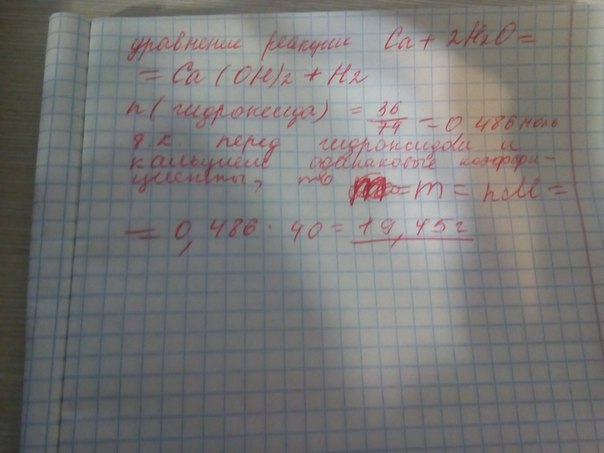 уравнение реакции Ca + 2H2O =
= Ca(OH)2 + H2
n(гидроксида) = 36/74 = 0,486 моль
т.к. перед гидроксидом и
кальцием одинаковые коэффи-
циенты, то = m = nM =
= 0,486 · 40 = 19,45г